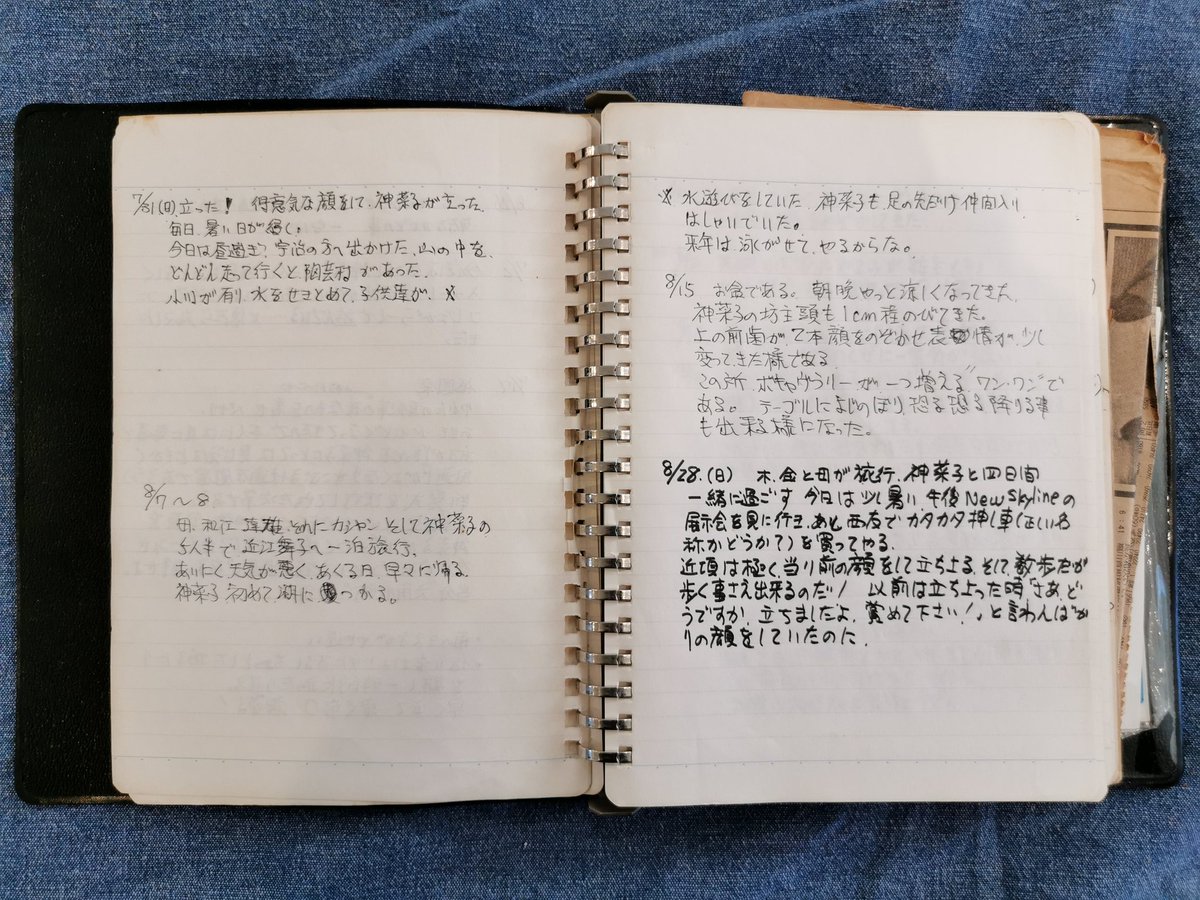 7/31(日)立った! 得意気な顔をして、神菜子が立った。
毎日、暑い日が続く。
今日は昼過ぎ、宇治の方へ出かけた、山の中を、
どんどん走って行くと、陶芸村があった。
小川が有り、水をせきとめて、子供達が、※
8/7〜8
母、和江、雄、それにカシャン そして神菜子の
5人半で近江舞子へ一泊旅行。
あいにく天気が悪く、あくる日、早々に帰る。
神菜子 初めて、湖につかる。
※ 水遊びをしていた、神菜子も足の先だけ仲間入り
はしゃいでいた。
来年は泳がせて、やるからな。
8/15 お盆である。朝晩やっと涼しくなってきた、
神菜子の坊主頭も1cm程のびてきた。
上の前歯が、2本顔をのぞかせ表情が、少し
変ってきた様である
この所、ボキャヴラリーが一つ増える"ワン・ワン"で
ある。 テーブルによじのぼり、恐る恐る降りる事
も出来る様になった。
8/28.(日) 木、金と母が旅行、神菜子と四日間
一緒に過ごす 今日は少し暑い、午後New Skylineの
展示会を見に行き、あと西友でカタカタ押し車(正しい名
称かどうか?)を買ってやる。
近頃は極く、当り前の顔をして立ち上る、そして、数歩だが
歩く事さえ出来るのだ! 以前は立ち上った時「さあ、ど
うですか、立ちましたよ、賞めて下さい!」と言わんばか
りの顔をしていたのに、